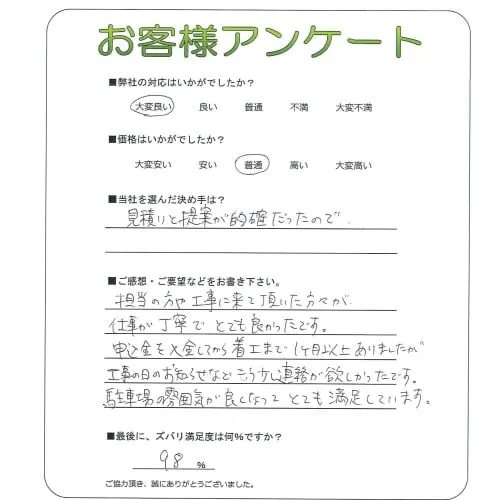 お客様アンケート
■弊社の対応はいかがでしたか？
大変良い 良い 普通 不満 大変不満
■価格はいかがでしたか？
大変安い 安い 普通 高い 大変高い
■当社を選んだ決め手は？
見積りと提案が的確だったので.
■ご感想・ご要望などをお書き下さい。
担当の方や工事に来て頂いた方々が
仕事が丁寧でとても良かったです。
申込金を入金してから着工まで1ヶ月以上ありましたが
工事の日のお知らせなどもう少し連絡が欲しかったです。
駐車場の雰囲気が良くなってとても満足しています。
■最後に、ズバリ満足度は何%ですか？
98 %
ご協力頂き、誠にありがとうございました。